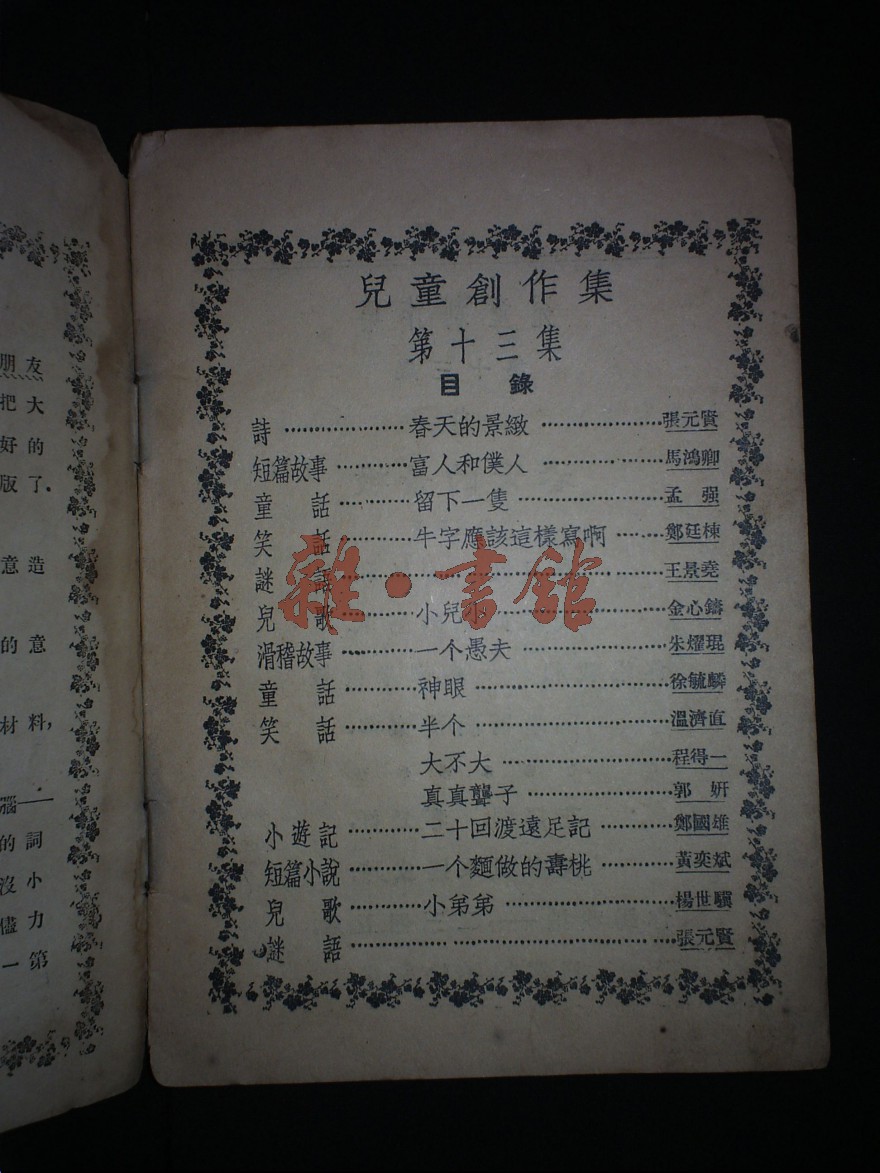 兒童創作集
第十三集
目 錄
詩……………春天的景緻……………張元賢
短篇故事………富人和僕人……………馬鴻卿
童 話………留下一隻………………孟 强
笑 話………牛字應該這樣寫啊……鄭廷棟
謎 語………………………………王景堯
兒 歌………小兒小………………金心鑄
滑稽故事………一个愚夫………………朱燿琨
童 話………神眼……………………徐毓麟
笑 話………半个……………………溫濟直
大不大…………………程得一
真真聾子………………郭 妍
小遊記…………二十回渡遠足記………鄭國雄
短篇小說………一个麵做的壽桃………黃奕斌
兒 歌………小弟弟…………………楊世驥
謎 語………………………………張元賢
雜·書館
朋友
把大
好的
版了.
意造
的意
材料,
腦——
的詞
沒小
儘力
一第